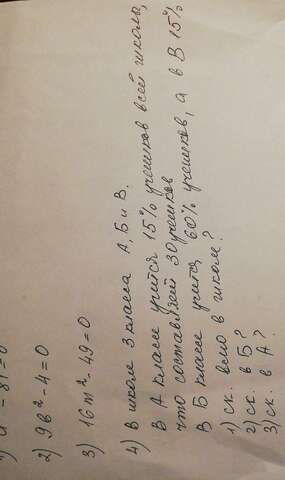 - 81 = 0
2) 9в² - 4 = 0
3) 16m² - 49 = 0
4) В школе 3 класса А, Б и В.
В А классе учится 15% учеников всей школы,
что составляет 30 учеников
В Б классе учится 60% учеников, а в В 15%
1) ск. всего в школе?
2) ск. в Б?
3) ск. в А?